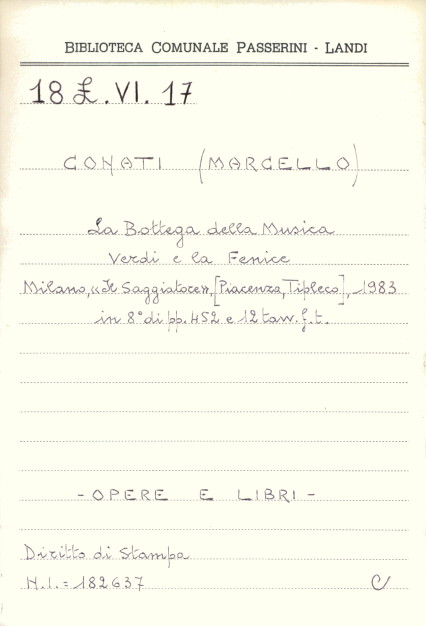 BIBLIOTECA COMUNALE PASSERINI - LANDI
18 £.VI.17
CONATI (MARCELLO)
La Bottega della Musica
Verdi e la Fenice
Milano, «Il Saggiatore», [Piacenza, Tipleco], 1983
in 8° di pp. 452 e 12 tavv. f. t.
- OPERE E LIBRI -
Diritto di Stampa
N.I. = 182637
C